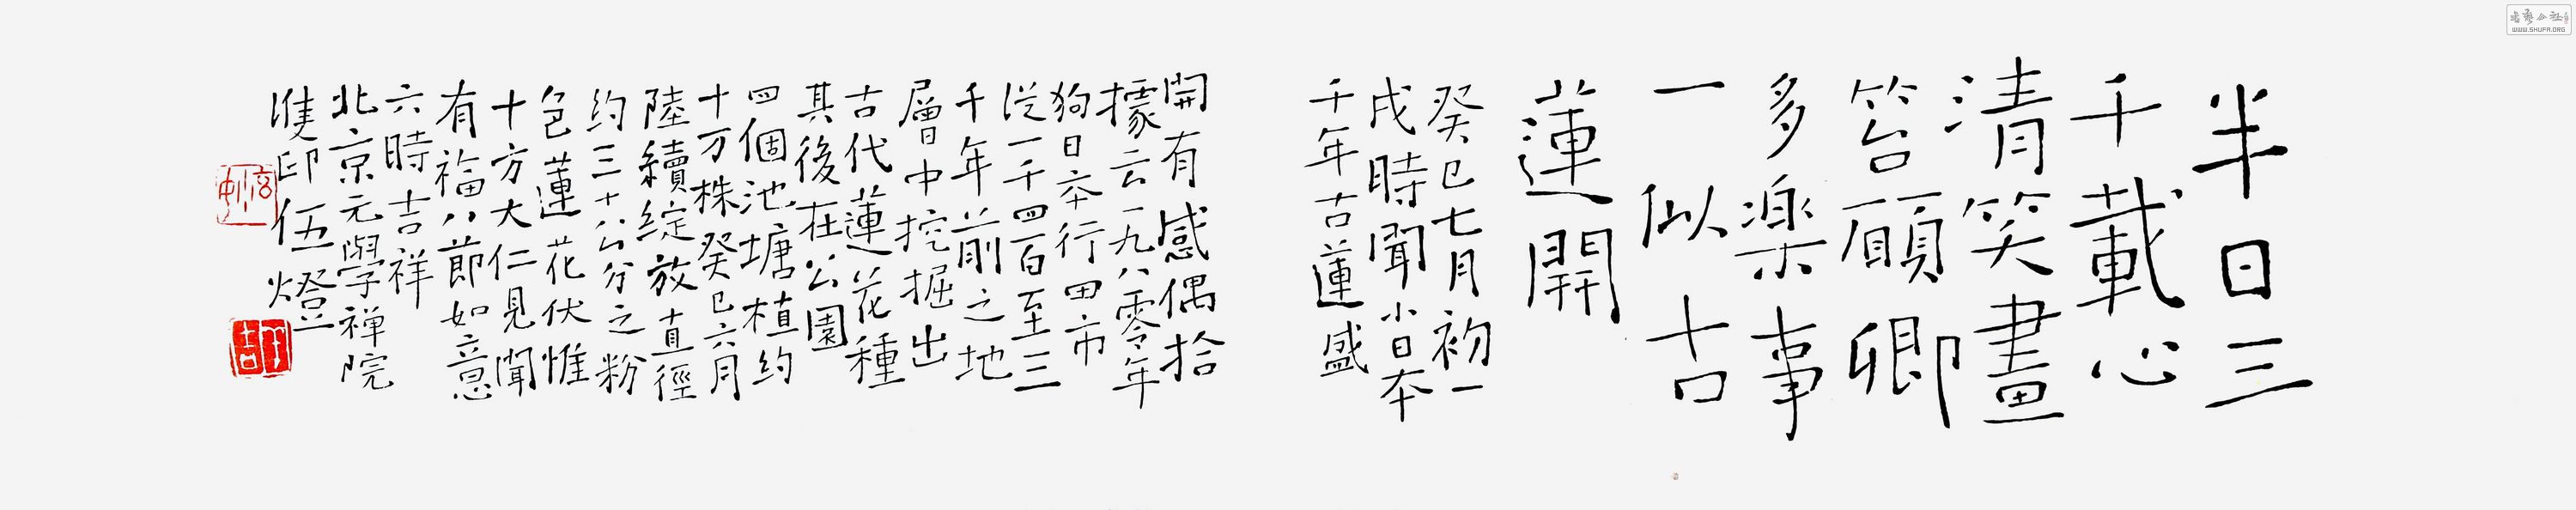 半日三
千載心
清笑畫
答願卿
多樂事
一似古
蓮開
癸巳七月初一
戌時聞小日本
千年古蓮盛
開有感偶拾
據云一九八零年
狗日本行田市
從一千四百至三
千年前之地
層中挖掘出
古代蓮花種
其後在公園
四個池塘植约
十万株癸巳六月
陸續綻放直徑
约三十公分之粉
色蓮花伏惟
十方大仁見聞
有福八節如意
六時吉祥
北京元學禅院
雙印伍燈
WWW.SHUFA.ORG